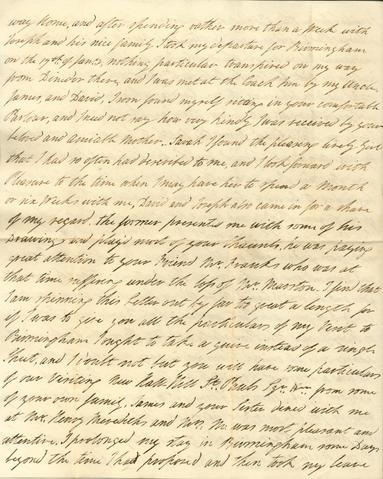 way home, and after spending rather more than a Week with
Joseph and his nice family. I took my departure for Birmingham
on the 17th of Jany, nothing particular transpired on my way
from London there, and I was met at the Coach Inn by my Uncle
James, and David, I soon found myself sitting in your comfortable
Parlour, and I need not say how very kindly I was received by your
beloved and amiable Mother. Sarah I found the pleasing lively Girl
that I had so often had described to me, and I look forward with
Pleasure to the time when I may have her to spend a Month
or six Weeks with me, David and Joseph also came in for a share
of my regard, the former presented me with some of his
Drawings and plays most of your he was paying
great attention to your Friend Mr. Franks who was at
that time suffering under the loss of Mr. Marston. I find that
I am spinning this Letter out by far to great a length for
if I was to give you all the particulars of my Visit to
Birmingham I ought to take a quire instead of a single
Sheet, and I doubt not but you will have some particulars
of our Visiting New Hall Hill St. Pauls Sqr. &c from some
of your own family. James and your Sister dined with me
at Mr. Henry Merediths and Mrs. M. was most pleasant and
attentive. I prolonged my stay in Birmingham some Days
beyond the time I had proposed and then took my leave